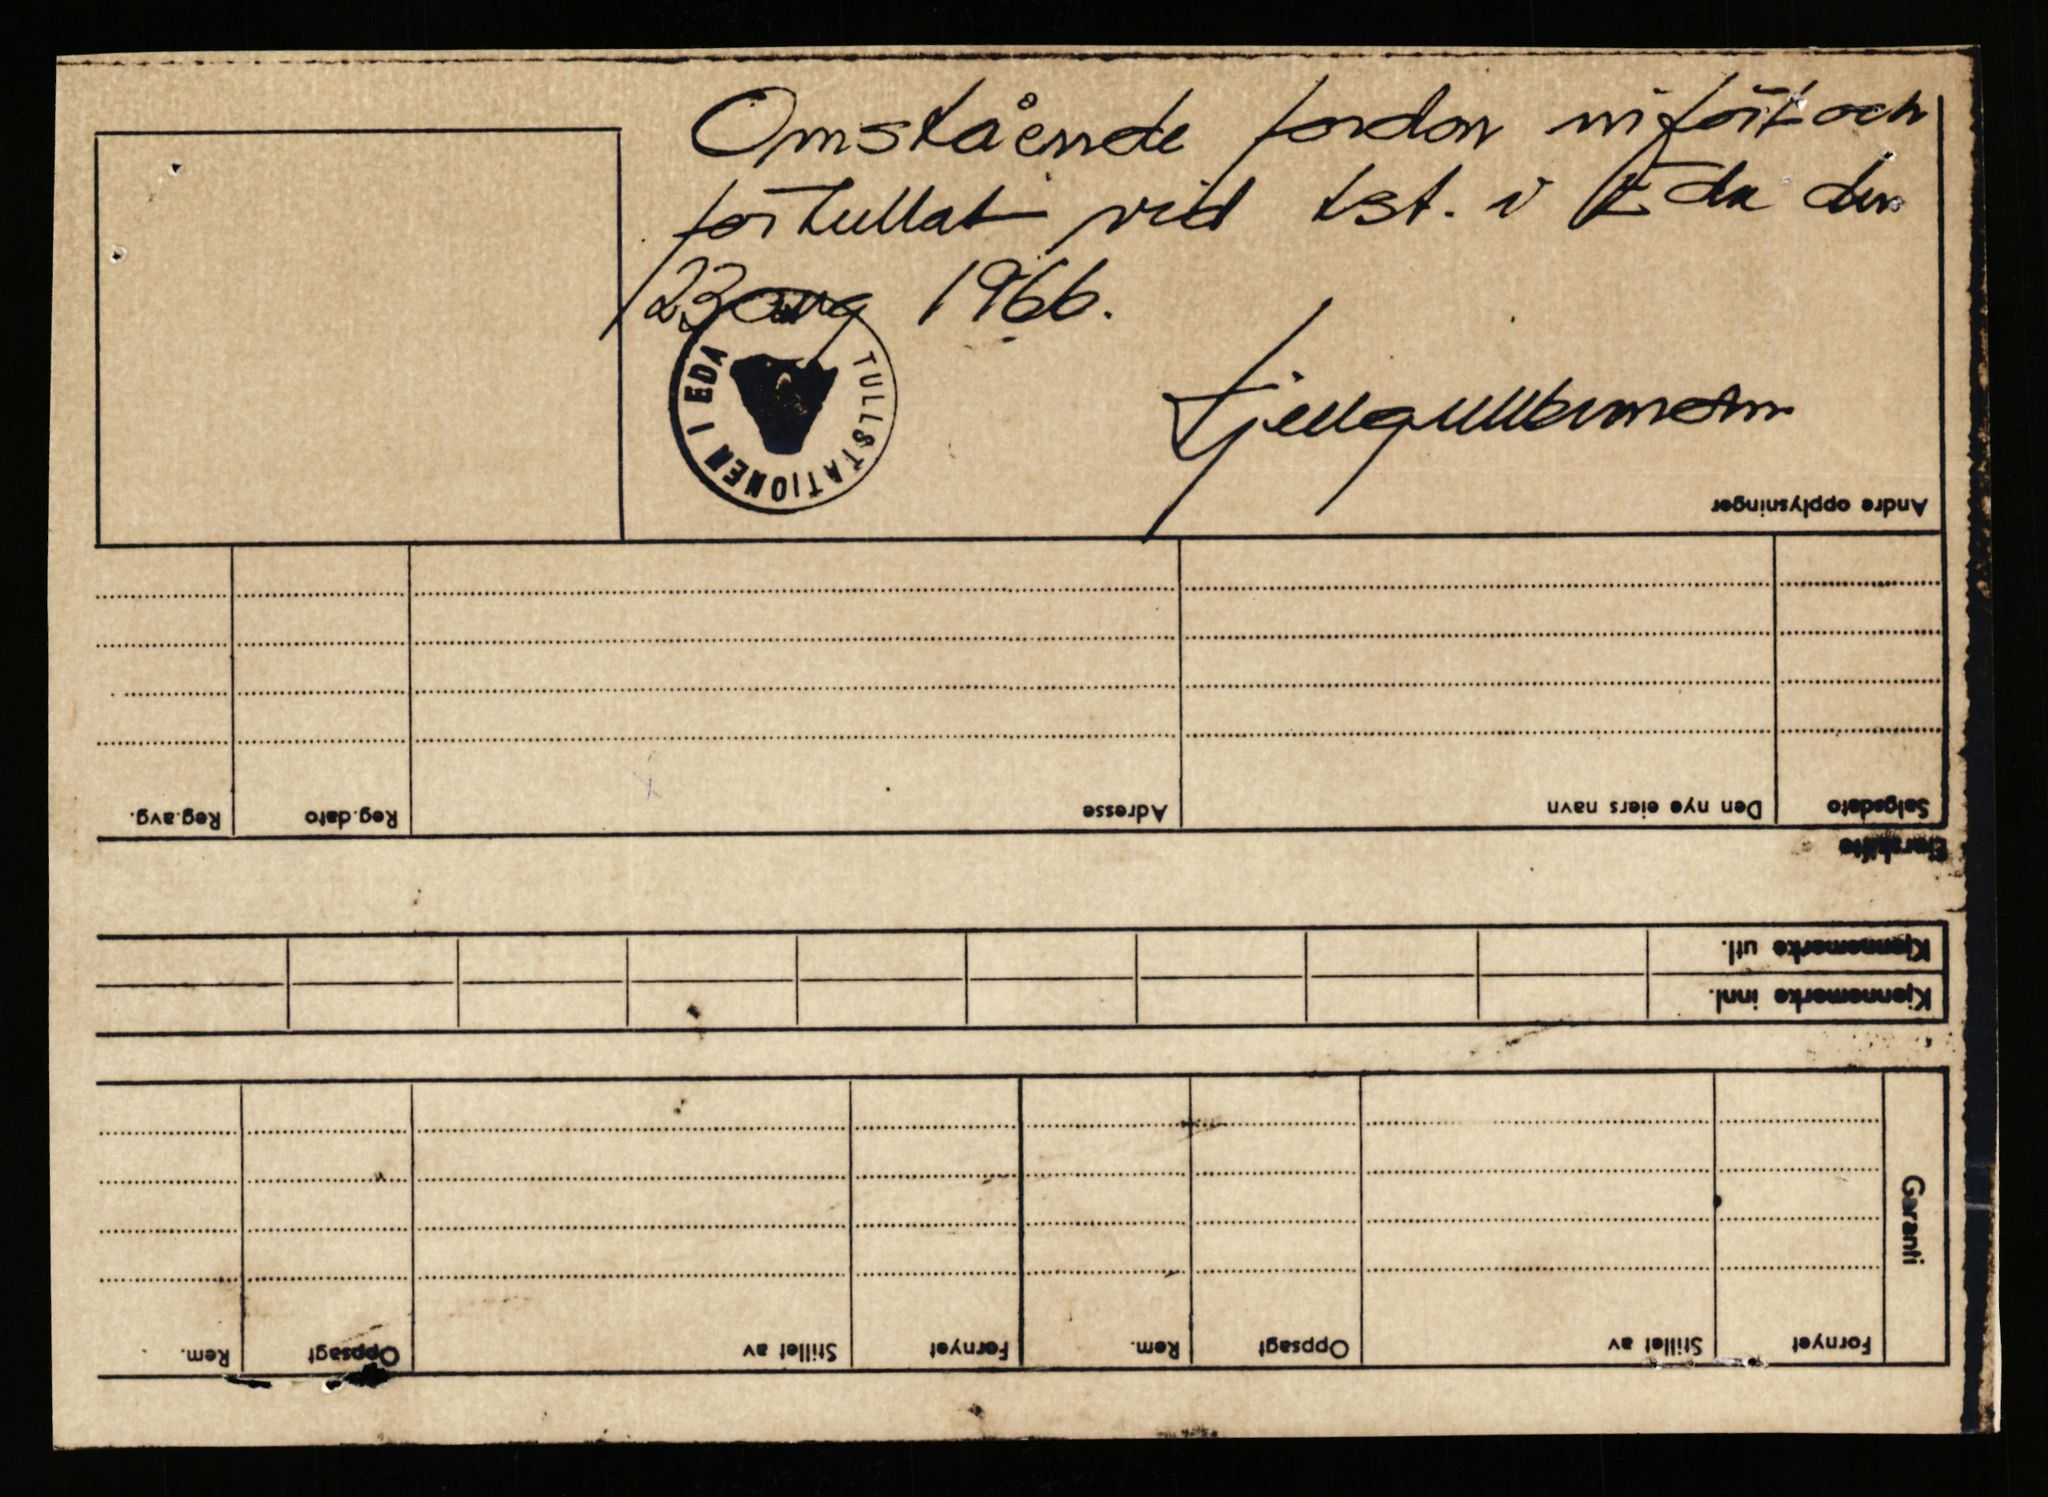 Omstående fordon infört och
förtullat vid tst. i Eda den
23 aug 1966.
TULLSTATIONEN I EDA
Andre opplysninger
Salgsdato Den nye eiers navn Adresse Reg.dato Reg.avg.
Eierskifte
Kjennemerke utl.
Kjennemerke innl.
Garanti
Fornyet Stillet av Oppsagt Rem. Fornyet Stillet av Oppsagt Rem.